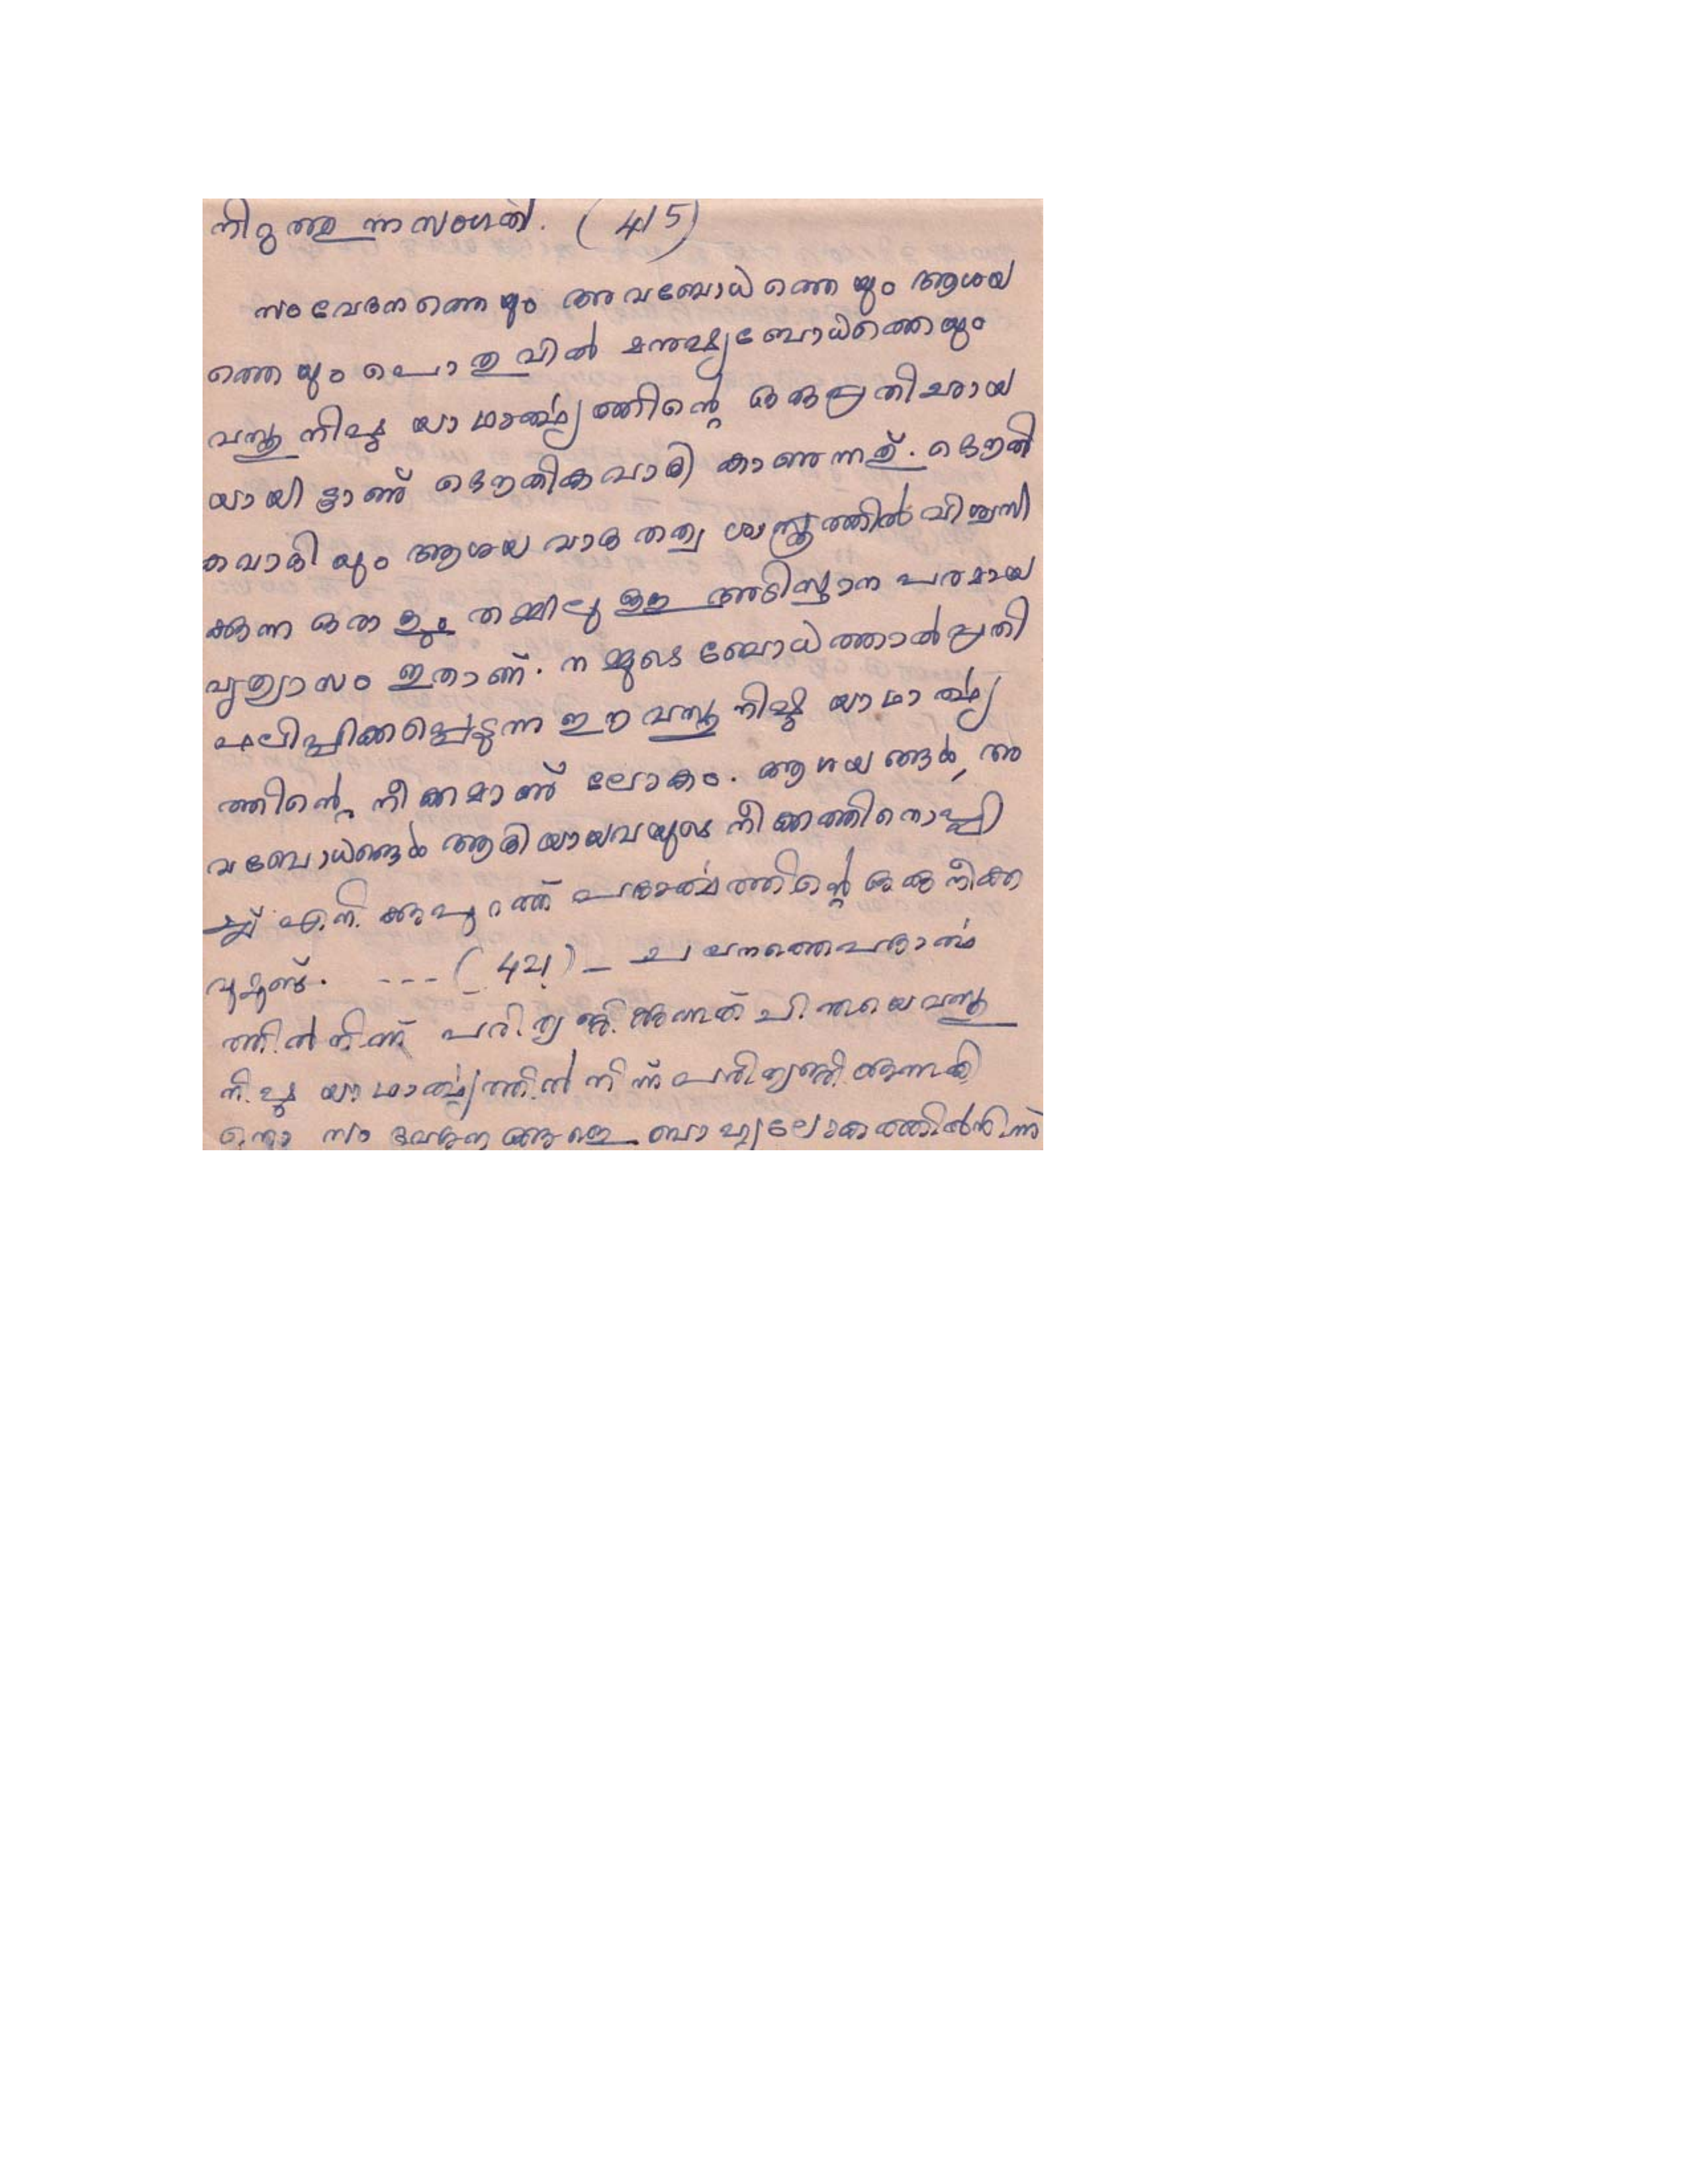 നിറുത്തുന്നസംഗതി. (415)
സംവേദനത്തെയും അവബോധത്തെയും ആശയ
ത്തെയും പൊതുവിൽ മനുഷ്യബോധത്തെയും
വസ്തുനിഷ്ഠ യാഥാർത്ഥ്യത്തിന്റെ ഒരു പ്രതിഛായ
യായിട്ടാണ് ഭൌതികവാദി കാണുന്നത്. ഭൌതി
കവാദിയും ആശയവാദ തത്വശാസ്ത്രത്തിൽ വിശ്വസി
ക്കുന്ന ഒരാളും തമ്മിലുള്ള അടിസ്ഥാനപരമായ
വ്യത്യാസം ഇതാണ്. നമ്മുടെ ബോധത്താൽ പ്രതി
ഫലിപ്പിക്കപ്പെടുന്ന ഈ വസ്തുനിഷ്ഠ യാഥാർത്ഥ്യ
ത്തിന്റെ നീക്കമാണ് ലോകം. ആശയങ്ങൾ, അ
വബോധങ്ങൾ ആദിയായവയുടെ നീക്കത്തിനൊപ്പി
ച്ച് എനിക്കുപുറത്ത് പദാർത്ഥത്തിന്റെ ഒരു നീക്ക
വുമുണ്ട്. --- (421) - ചലനത്തെപദാർത്ഥ
ത്തിൽനിന്ന് പരിത്യജിക്കുന്നത് ചിന്തയെ വസ്തു
നിഷ്ഠ യാഥാർത്ഥ്യത്തിൽ നിന്ന് പരിത്യജിക്കുന്നതി
സംവേദനങ്ങളെ ബാഹ്യലോകത്തിൽനിന്ന്